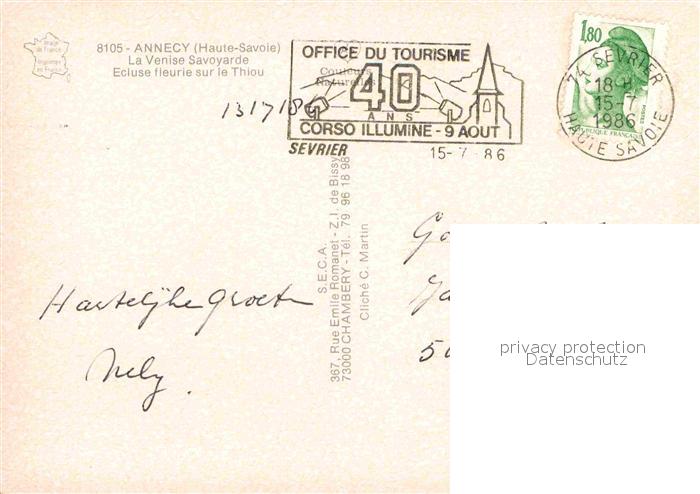 Image de France
8105 - ANNECY (Haute-Savoie)
La Venise Savoyarde
Ecluse fleurie sur le Thiou
OFFICE DU TOURISME
Couleurs Naturelles
40
ANS
CORSO ILLUMINE - 9 AOUT
SEVRIER
15-7 86
1,80
74 SEVRIER
18-H
15-7
1986
HAUTE SAVOIE
REPUBLIQUE FRANÇAISE
13 7 186
S.E.C.A.
367, Rue Emile Romanet - Z.I. de Bissy
73000 CHAMBERY - Tél. 79 96 18 98
Cliché C. Martin
Hartelijke Groeten
Nely.
privacy protection
Datenschutz